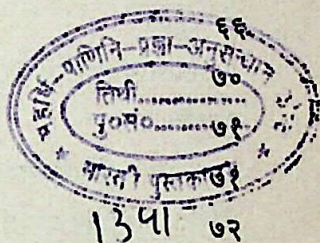 ६६
महर्षि-पाणिनि-प्रज्ञा-अनुसन्धान
७०
तिथी............
पु०सं०........... ७१
* भारती पुस्तका ७१ *
1341 ७२